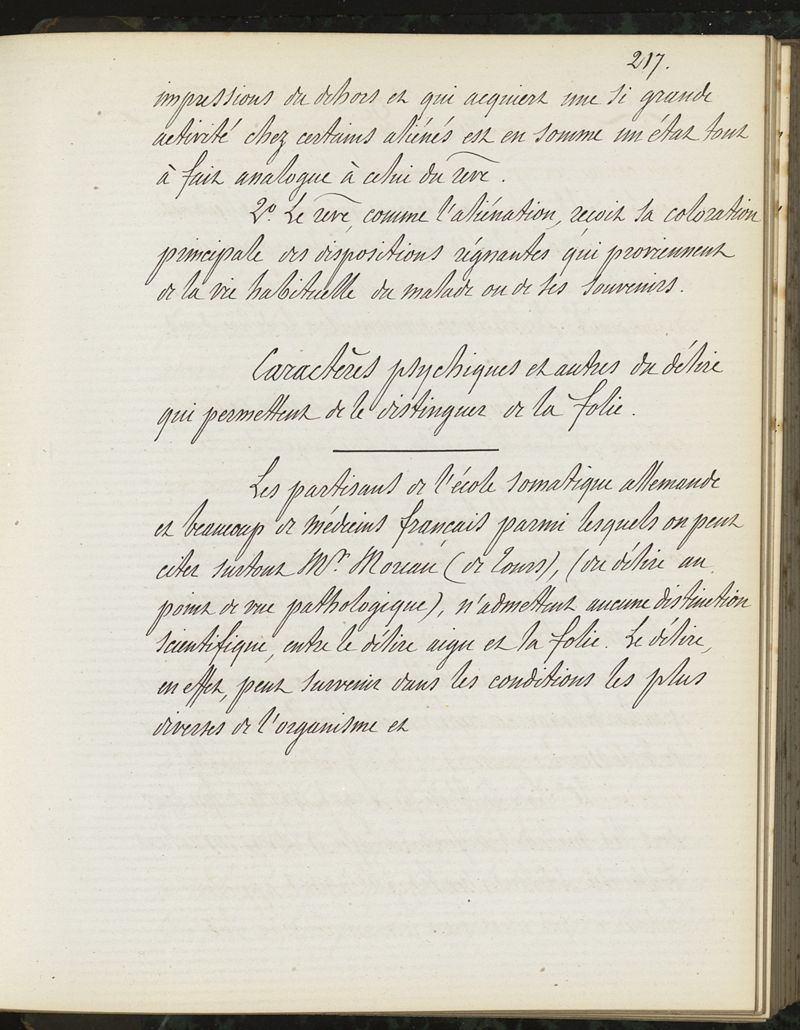 217.
impressions du dehors et qui acquiert une si grande
activité chez certains aliénés est en somme un état tout
à fait analogue à celui du rêve.
2º. Le rêve, comme l'aliénation, reçoit sa coloration
principale des dispositions régnantes qui proviennent
de la vie habituelle du malade ou de ses souvenirs.
Caractères psychiques et autres du délire
qui permettent de le distinguer de la folie.
Les partisans de l'école somatique allemande
et beaucoup de médecins français parmi lesquels on peut
citer surtout Mr. Moreau (de Tours), (du délire au
point de vue pathologique), n'admettent aucune distinction
scientifique, entre le délire aigu et la folie. Le délire,
en effet, peut survenir dans les conditions les plus
diverses de l'organisme et